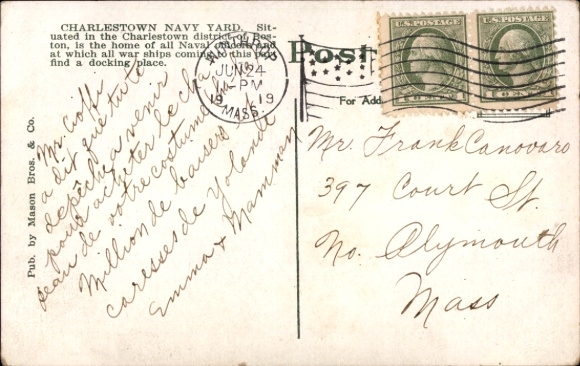 CHARLESTOWN NAVY YARD. Sit-
uated in the Charlestown district of Bos-
ton, is the home of all Naval and
at which all war ships coming to this port
find a docking place.
Post
For Add
JUN 24
PM
19 19
MASS.
U.S. POSTAGE
U.S. POSTAGE
Pub. by Mason Bros. & Co.
Mr.
a dit que tu te
dépêche a venir
pour acheter le cha
peau de votre costume
Million de baisers
caresses de Yolande
Emma & Mamman
Mr. Frank Canovaro
397 Court St.
No. Plymouth
Mass